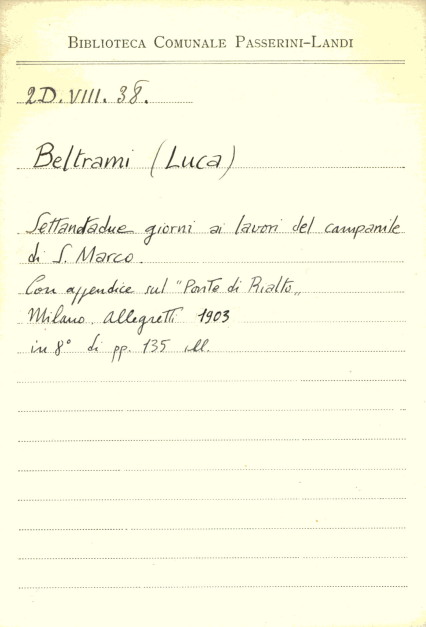 BIBLIOTECA COMUNALE PASSERINI-LANDI
2D. VIII. 38.
Beltrami (Luca)
Settandadue giorni ai lavori del campanile
di S. Marco.
Con appendice sul "Ponte di Rialto„
Milano. Allegretti 1903
in 8° di pp. 135 ill.